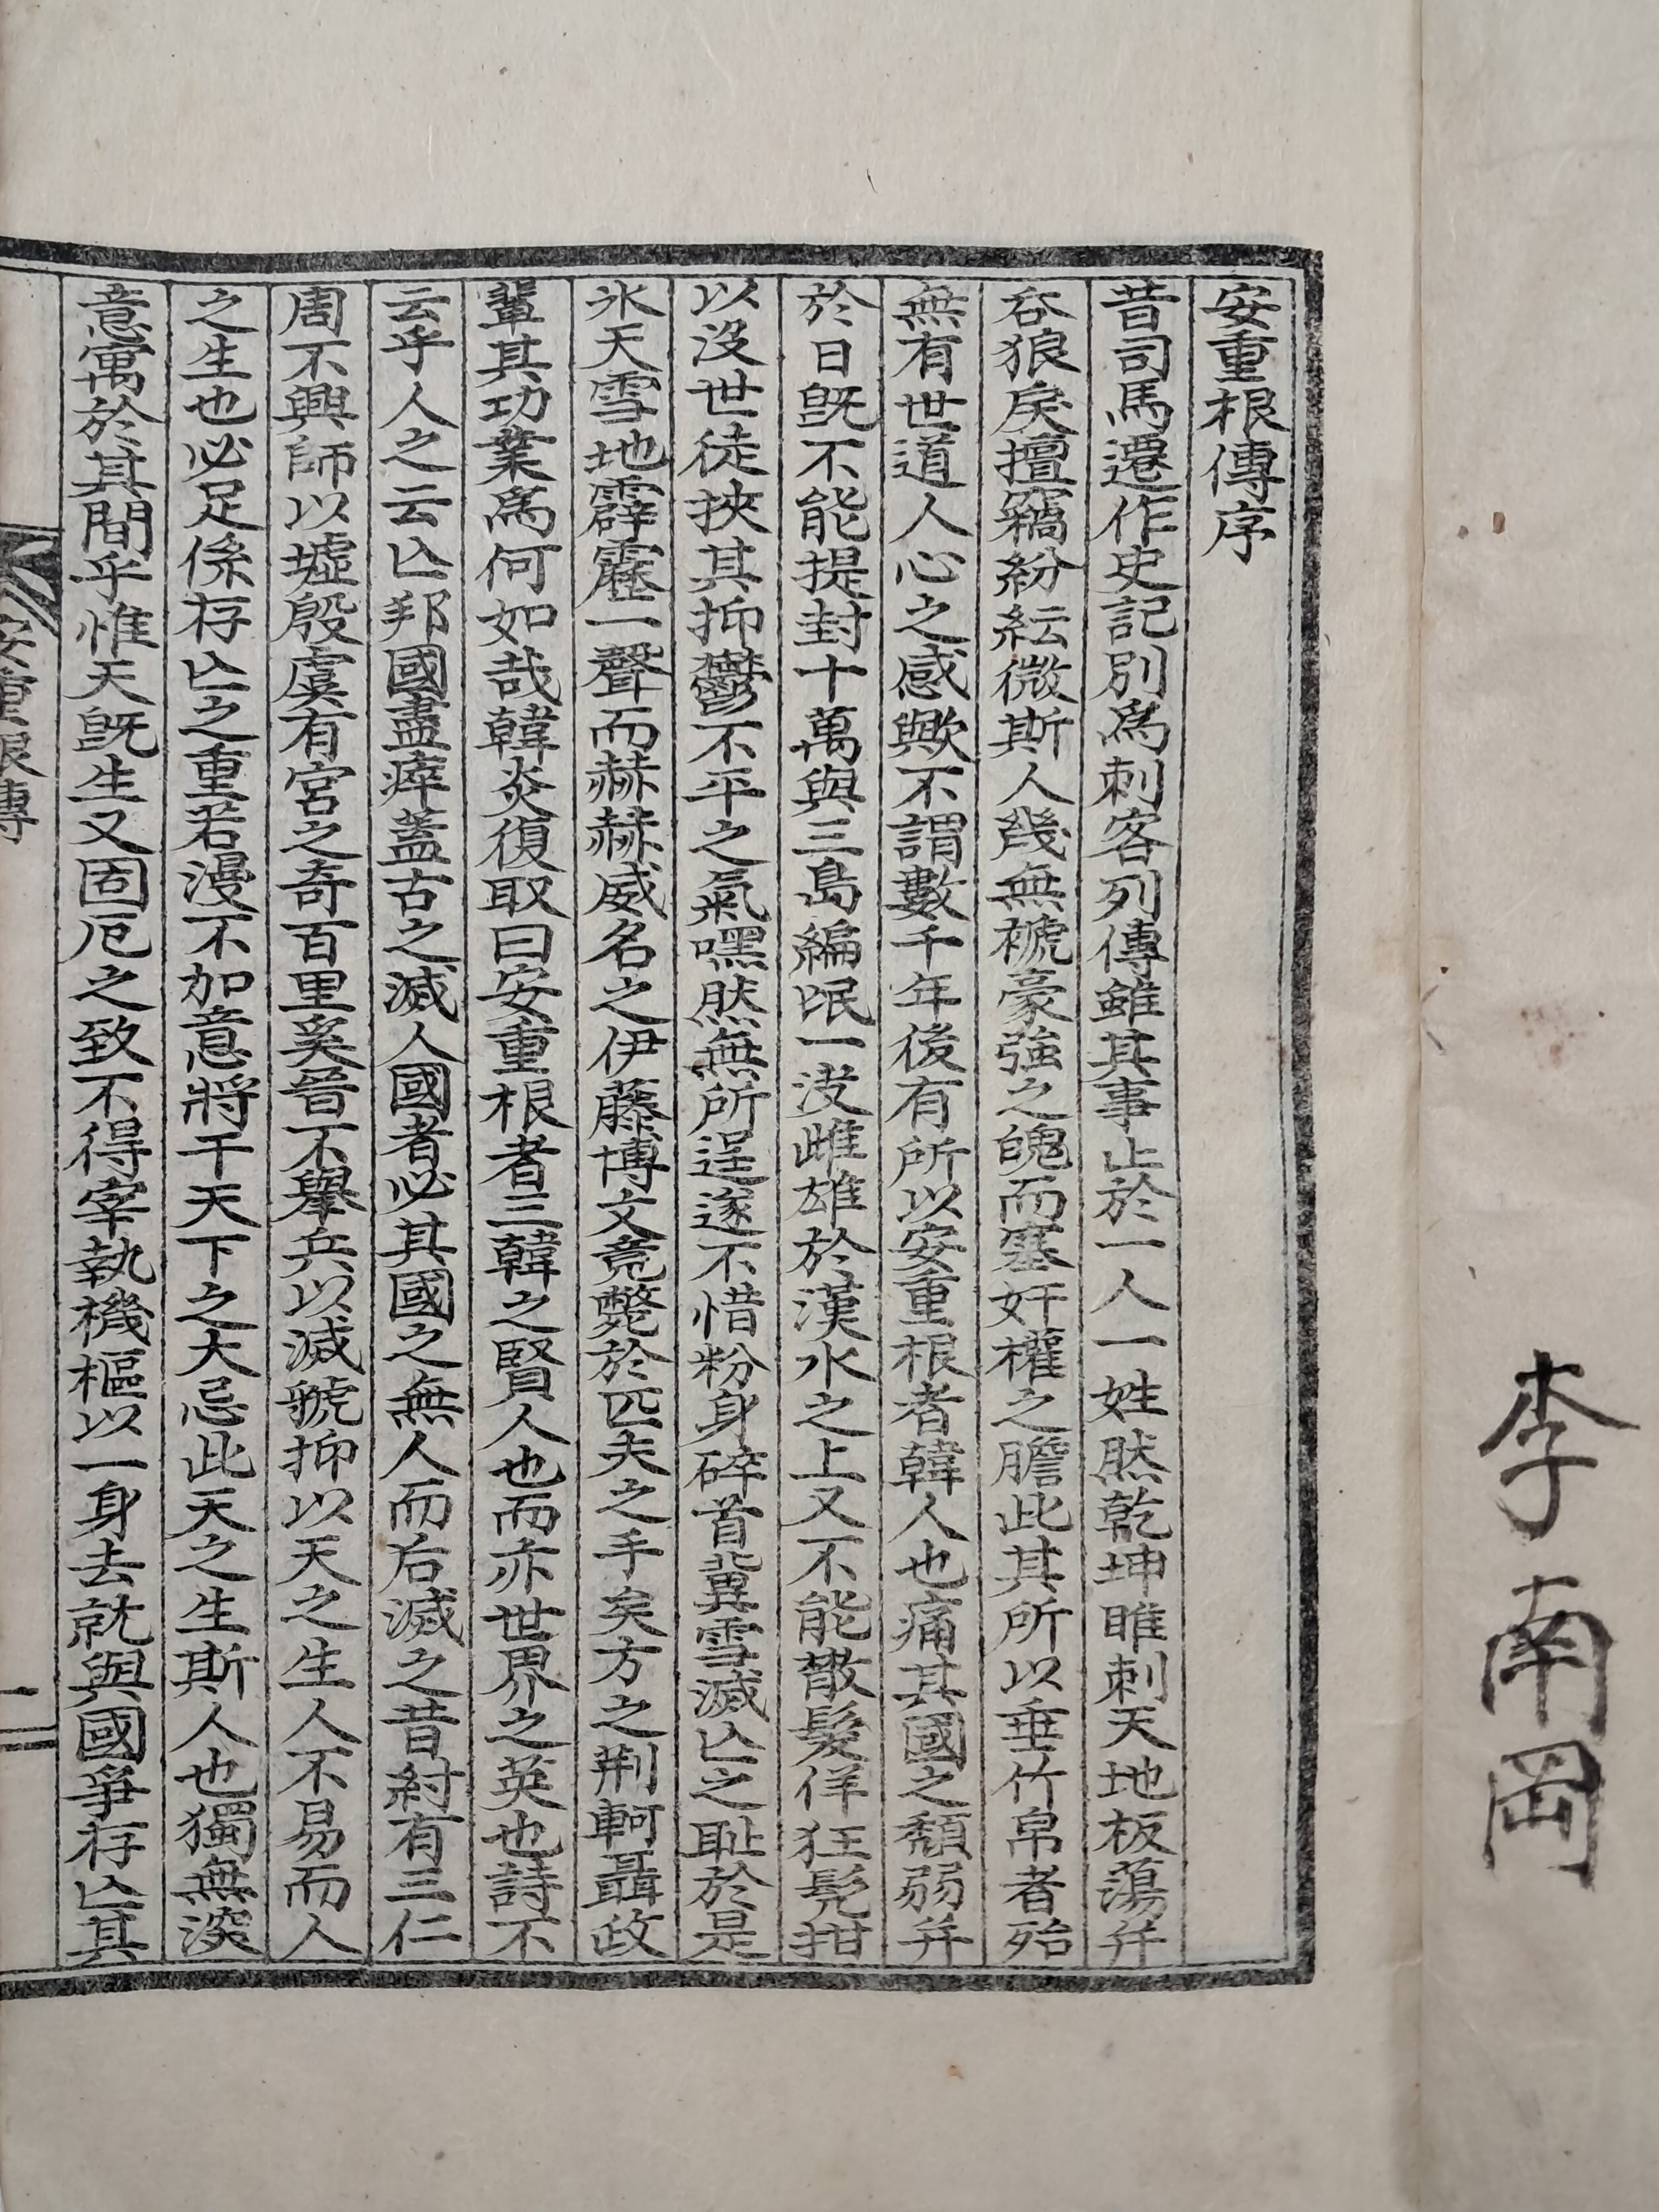 李南岡
安重根傳序
昔司馬遷作史記別爲刺客列傳雖其事止於一人一姓然乾坤睢刺天地板蕩幷
呑狼戾擅竊紛紜微斯人幾無褫豪強之魄而塞奸權之膽此其所以垂竹帛者殆
無有世道人心之感歟不謂數千年後有所以安重根者韓人也痛其國之頹弱幷
於日旣不能提封十萬與三島編氓一決雌雄於漢水之上又不能散髮佯狂髡拑
以沒世徒挾其抑鬱不平之氣嘿然無所逞遂不惜粉身碎首冀雪滅亾之恥於是
氷天雪地霹靂一聲而赫赫威名之伊藤博文竟斃於匹夫之手矣方之荆軻聶政
輩其功業爲何如哉韓炎復取曰安重根者三韓之賢人也而亦世界之英也詩不
云乎人之云亾邦國盡瘁蓋古之滅人國者必其國之無人而后滅之昔紂有三仁
周不興師以墟殷虞有宮之奇百里奚晉不擧兵以滅虢抑以天之生人不易而人
之生也必足係存亾之重若漫不加意將干天下之大忌此天之生斯人也獨無深
意寓於其間乎惟天旣生又固厄之致不得宰執機樞以一身去就與國爭存亾其
安重根傳